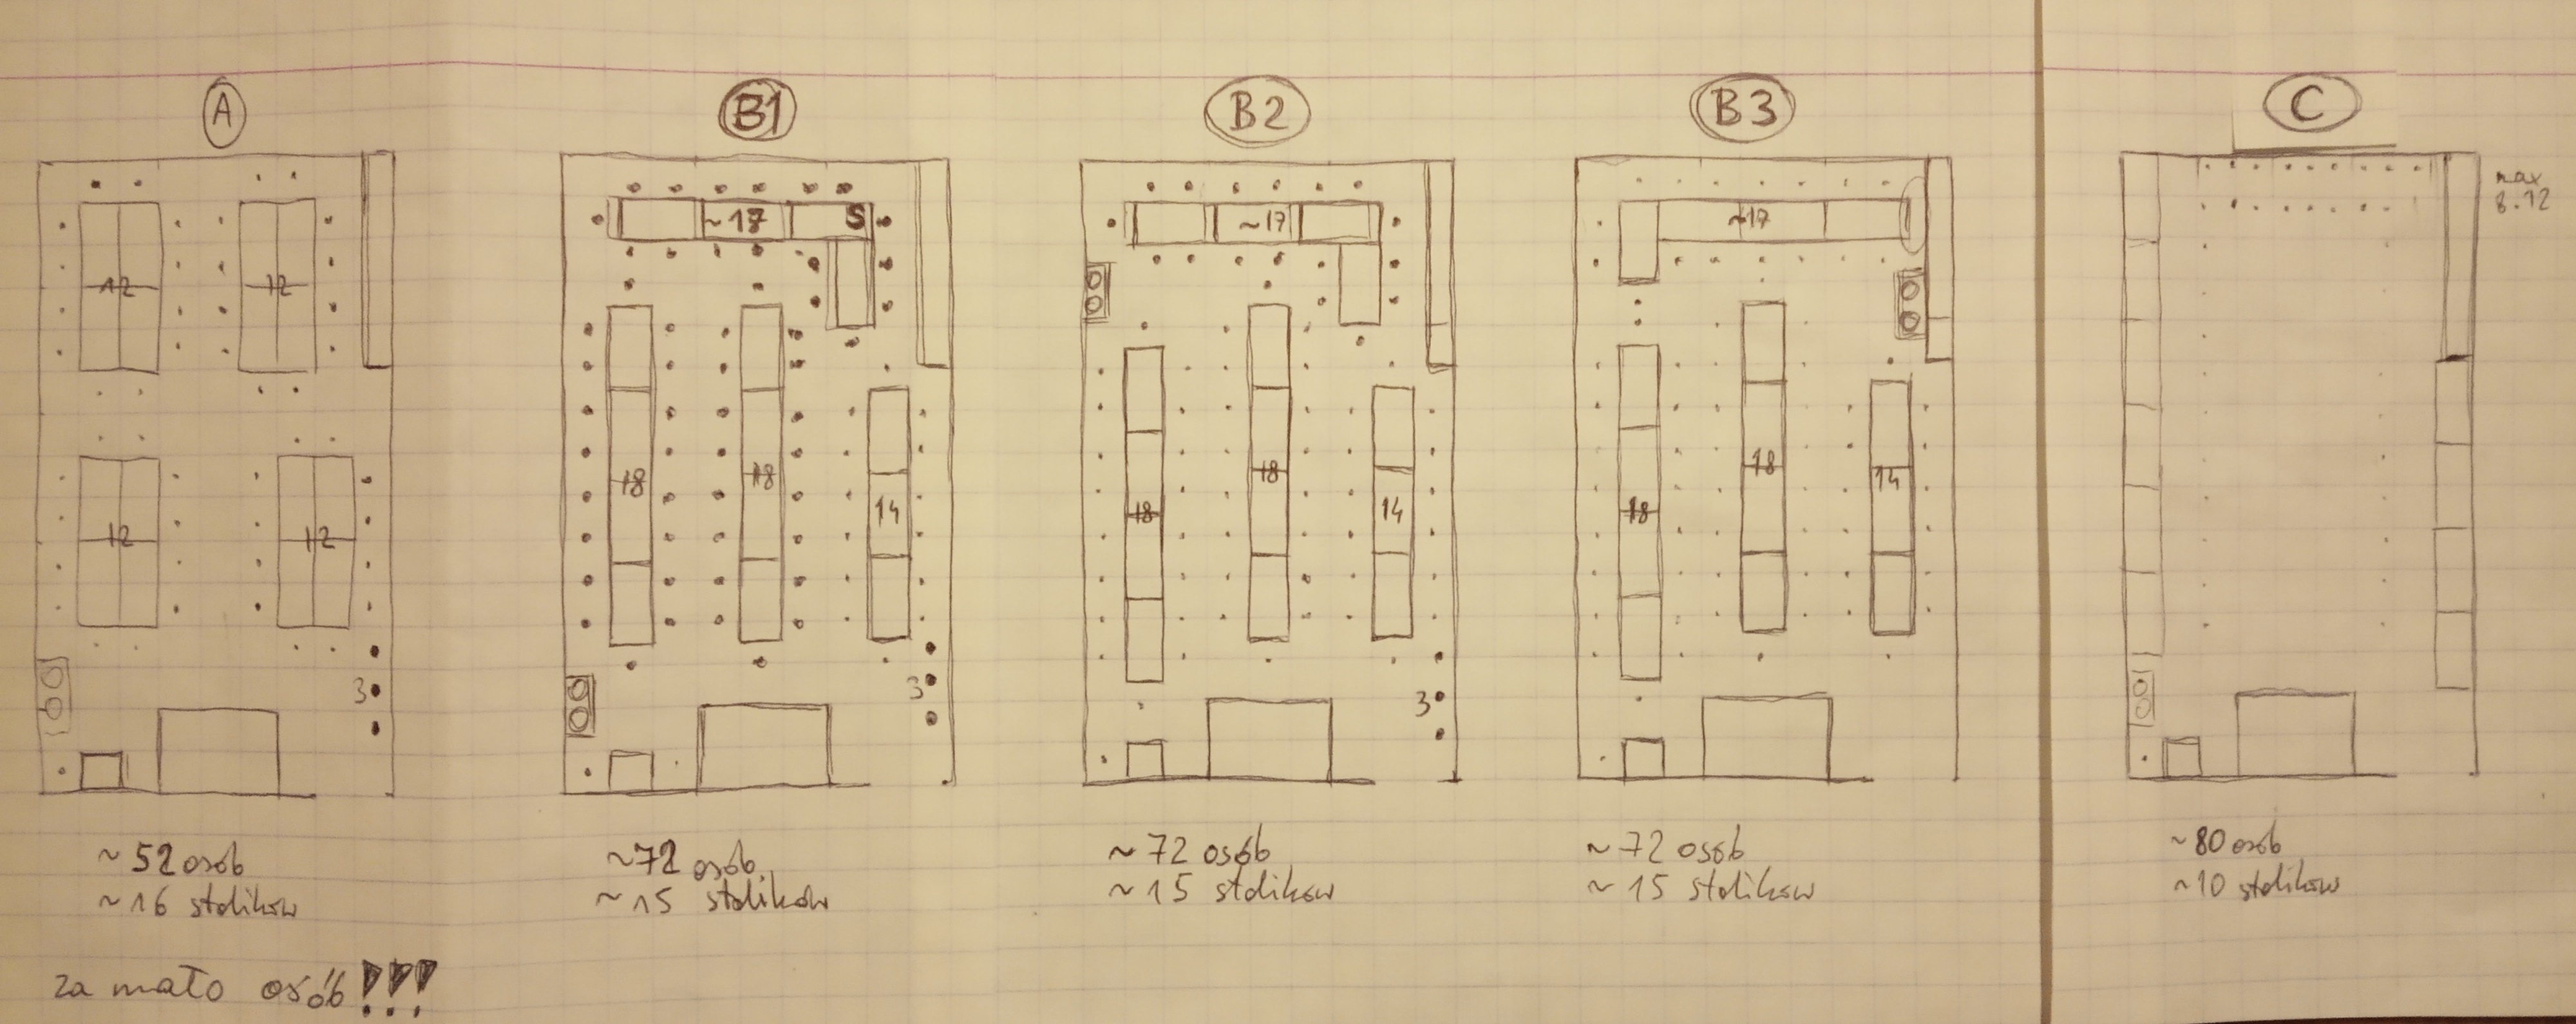 A
12
12
12
12
3
~ 52 osób
~ 16 stolików
za mało osób!!!
B1
~17
S
18
18
14
3
~72 osób
~ 15 stolików
B2
~17
18
18
14
3
~ 72 osób
~ 15 stolików
B3
~17
18
18
14
~ 72 osób
~ 15 stolików
C
max
8.12
~80 osób
~10 stolików